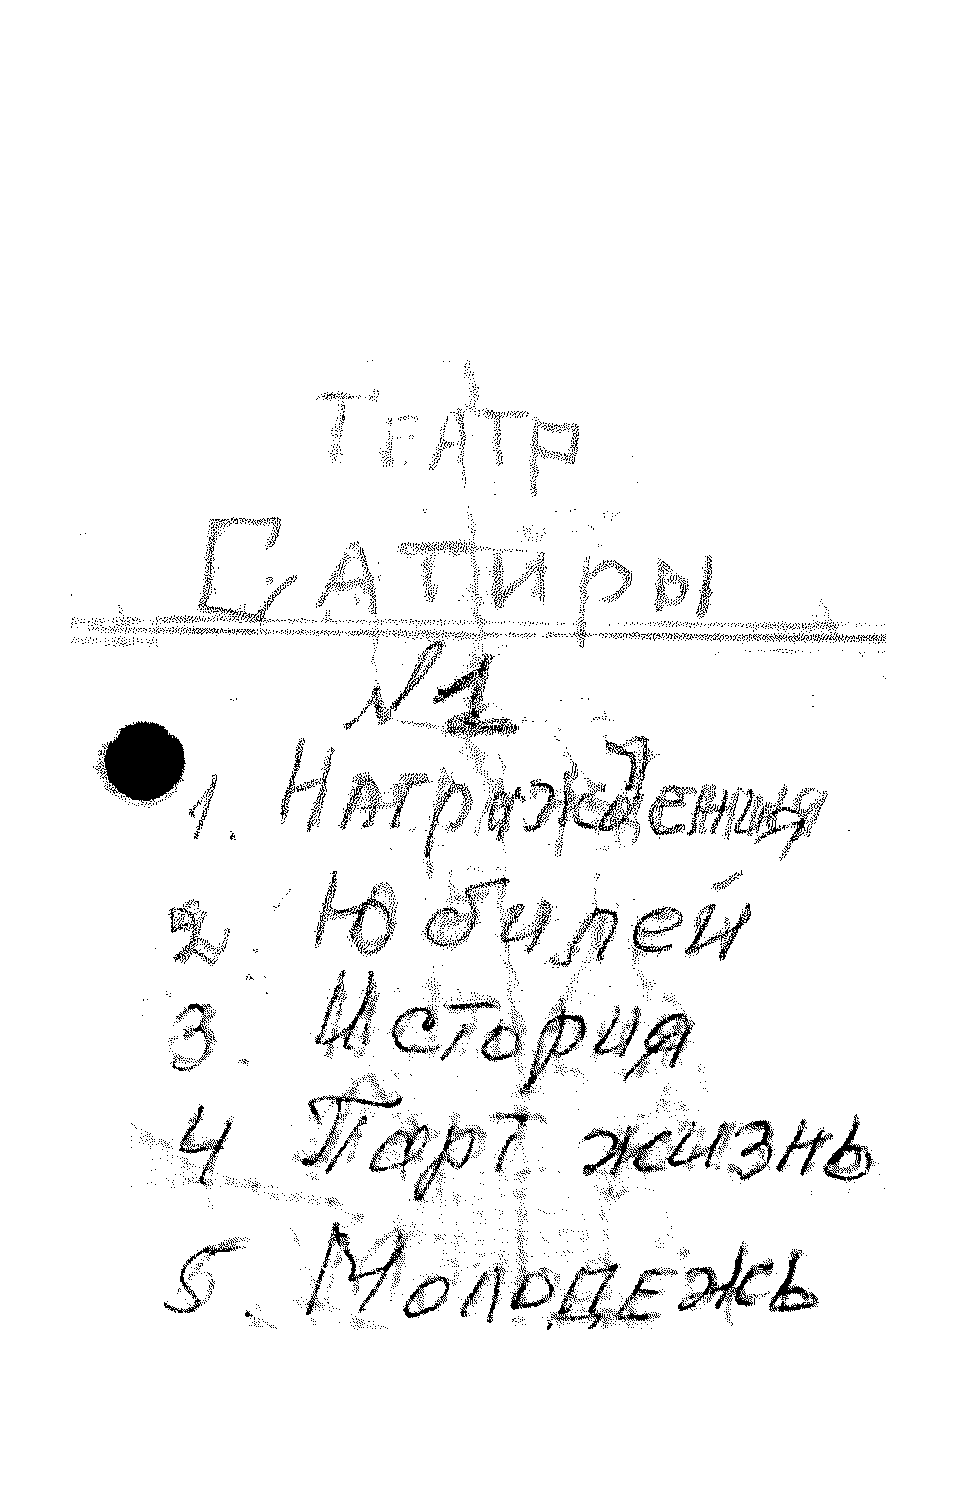 Театр
Сатиры
N1
1. Награждения
2. Юбилей
3. История
4 Парт жизнь
5. Молодежь